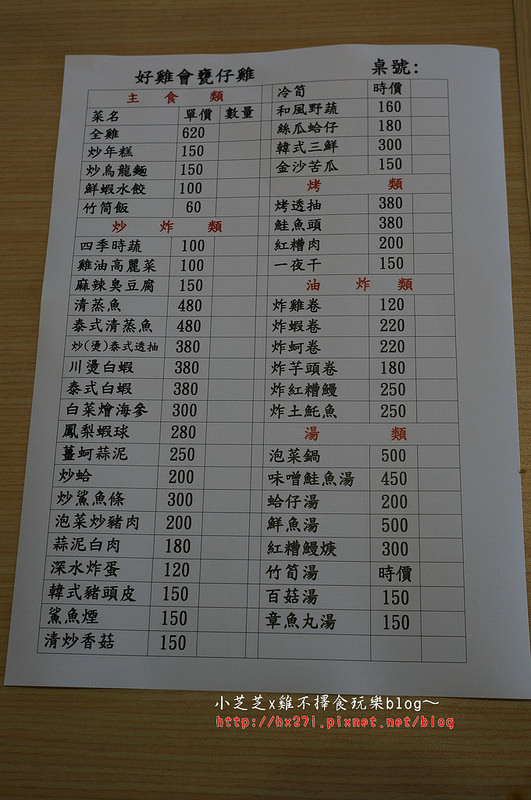 好雞會甕仔雞 桌號:
主食類
菜名 單價 數量
全雞 620
炒年糕 150
炒烏龍麵 150
鮮蝦水餃 100
竹筒飯 60
炒炸類
四季時蔬 100
雞油高麗菜 100
麻辣臭豆腐 150
清蒸魚 480
泰式清蒸魚 480
炒(燙)泰式透抽 380
川燙白蝦 380
泰式白蝦 380
白菜燴海參 300
鳳梨蝦球 280
薑蚵蒜泥 250
炒蛤 200
炒鯊魚條 300
泡菜炒豬肉 200
蒜泥白肉 180
深水炸蛋 120
韓式豬頭皮 150
鯊魚煙 150
清炒香菇 150
冷筍 時價
和風野蔬 160
絲瓜蛤仔 180
韓式三鮮 300
金沙苦瓜 150
烤類
烤透抽 380
鮭魚頭 380
紅糟肉 200
一夜干 150
油炸類
炸雞卷 120
炸蝦卷 220
炸蚵卷 220
炸芋頭卷 180
炸紅糟鰻 250
炸土魠魚 250
湯類
泡菜鍋 500
味噌鮭魚湯 450
蛤仔湯 200
鮮魚湯 500
紅糟鰻焿 300
竹筍湯 時價
百菇湯 150
章魚丸湯 150
小芝芝x雞不擇食玩樂blog~
http://hx27i.pixnet.net/blog